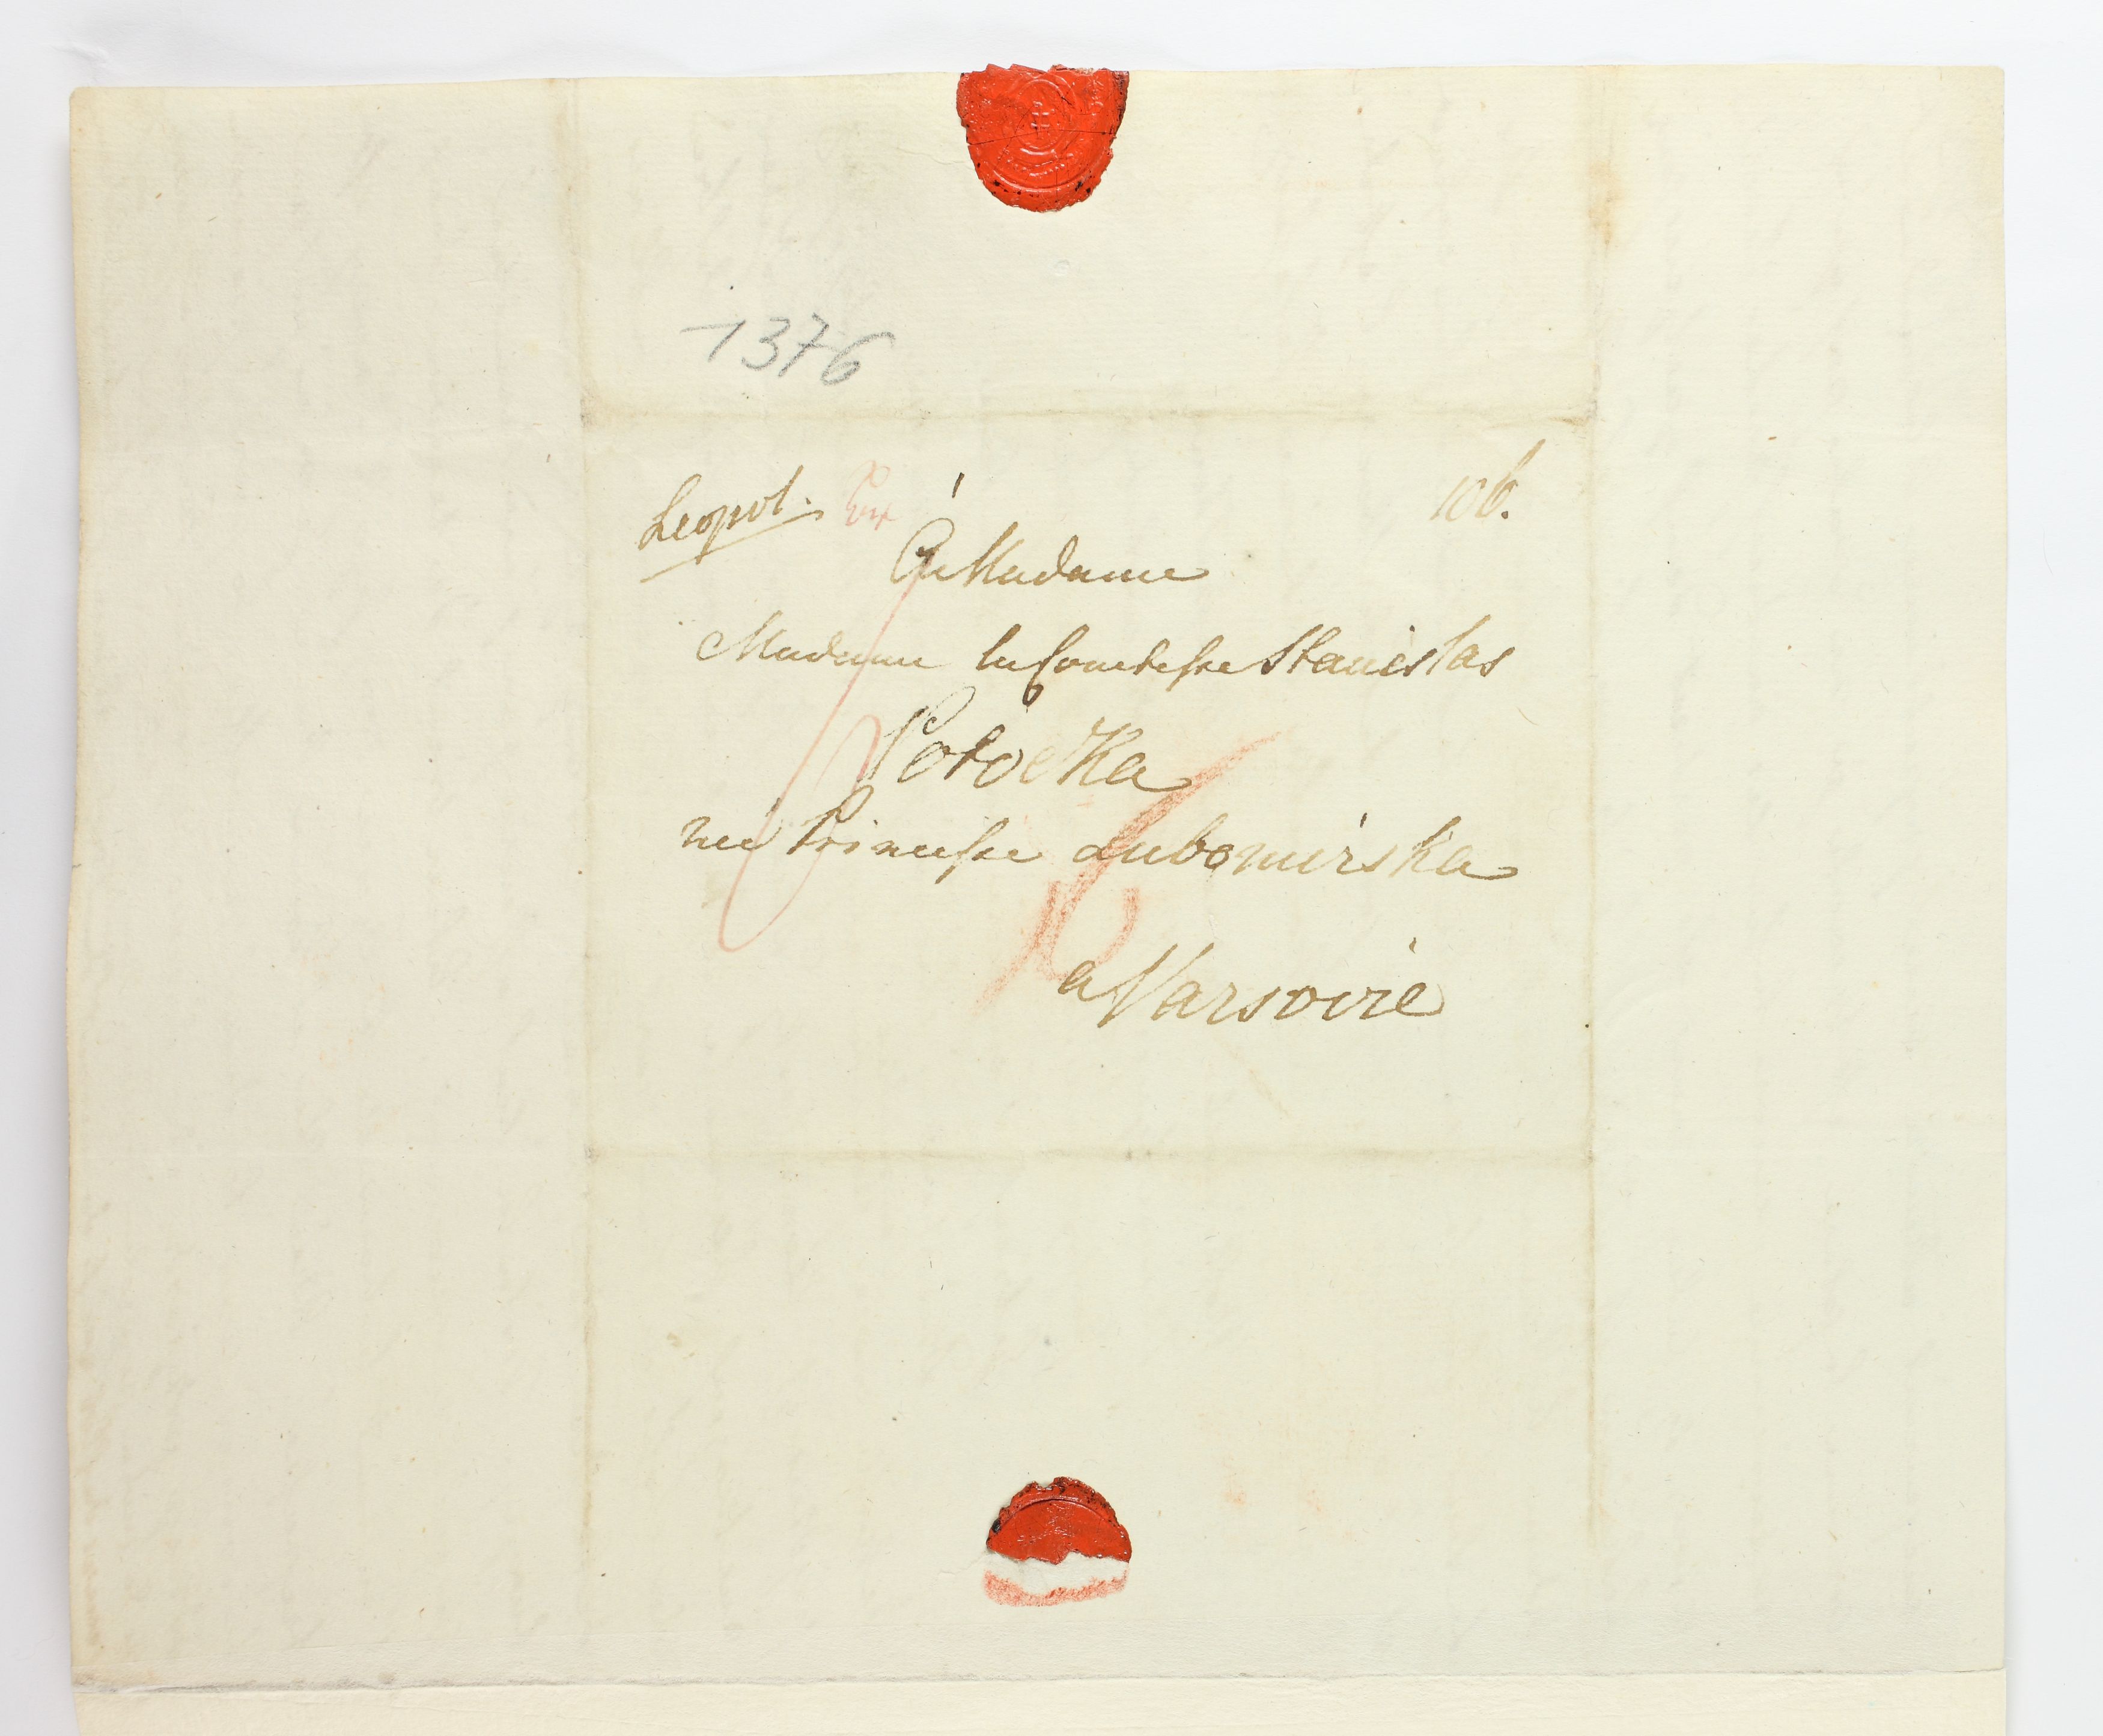 1376
Leopol. 106.
À Madame
Madame la Comtesse Stanislas
Potocka
neé Princesse Lubomirska
a Varsovie